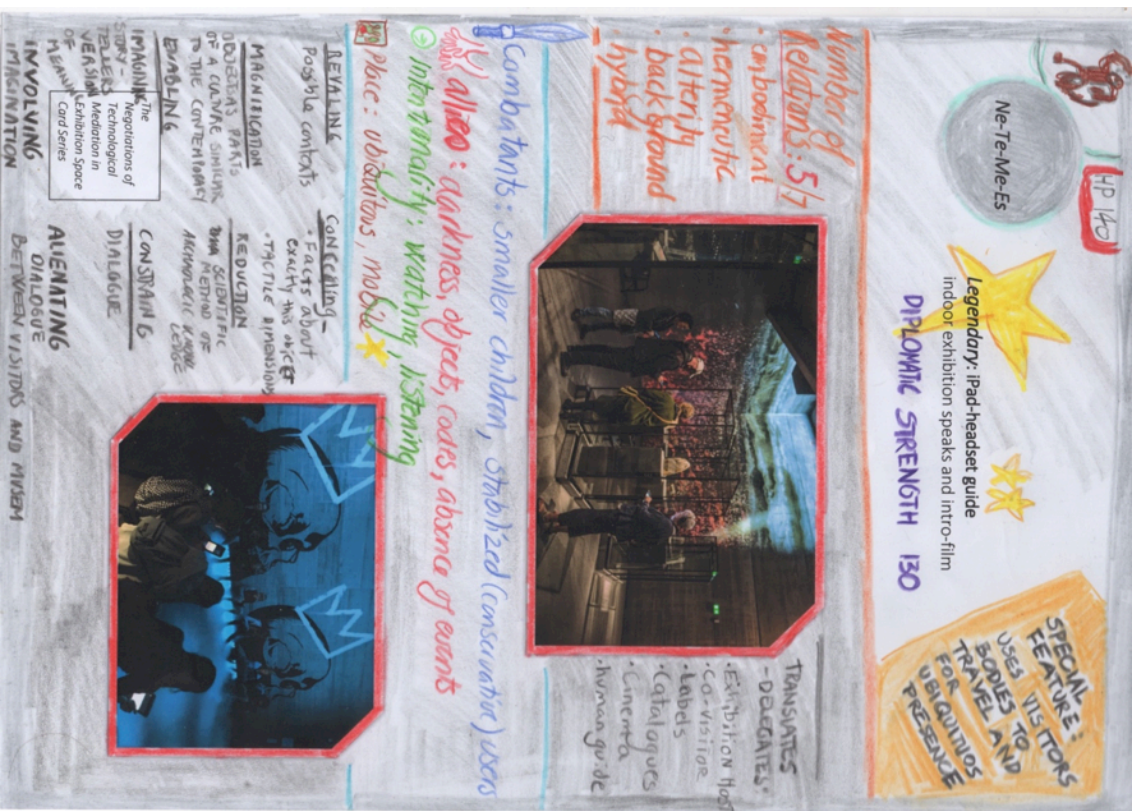 HP 140
Ne-Te-Me-Es
Legendary: iPad-headset guide
indoor exhibition speaks and intro-film
DIPLOMATIC STRENGTH 130
SPECIAL
FEATURE:
USES VISITORS
BODIES TO
TRAVEL AND
FOR
UBIQUITUOS
PRESENCE
Number of
Relations: 5/7
• embodiment
• hermeneutic
• alterity
• background
• hybrid
TRANSLATES
-DELEGATES-
• Exhibition Host
• co-visitor
• Labels
• Catalogues
• Cinema
• human guide
Combatants: smaller children, stabilized (conservative) users
allied: darkness, objects, codes, absence of events
intentionality: watching, listening
Place: ubiquitous, mobile
REVALING
Possible contexts
CONCEALING-
• Facts about
exactly this object
• TACTILE DIMENSIONS
MAGNIFICATION
OF A CULTURE SIMILAR
TO THE CONTEMPORARY
REDUCTION
SCIENTIFIC
METHOD OF
ENABLING
IMAGINING
STORY-
TELLERS
VERSION
OF
CONSTRAING
DIALOGUE
The
Negotiations of
Technological
Mediation in
Exhibition Space
Card Series
INVOLVING
IMAGINATION
ALIENATING
DIALOGUE
BETWEEN VISITORS AND MUSEUM